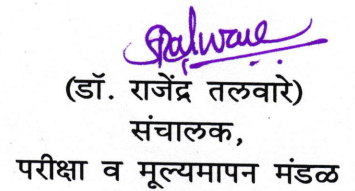 (डॉ. राजेंद्र तलवारे)
संचालक,
परीक्षा व मूल्यमापन मंडळ